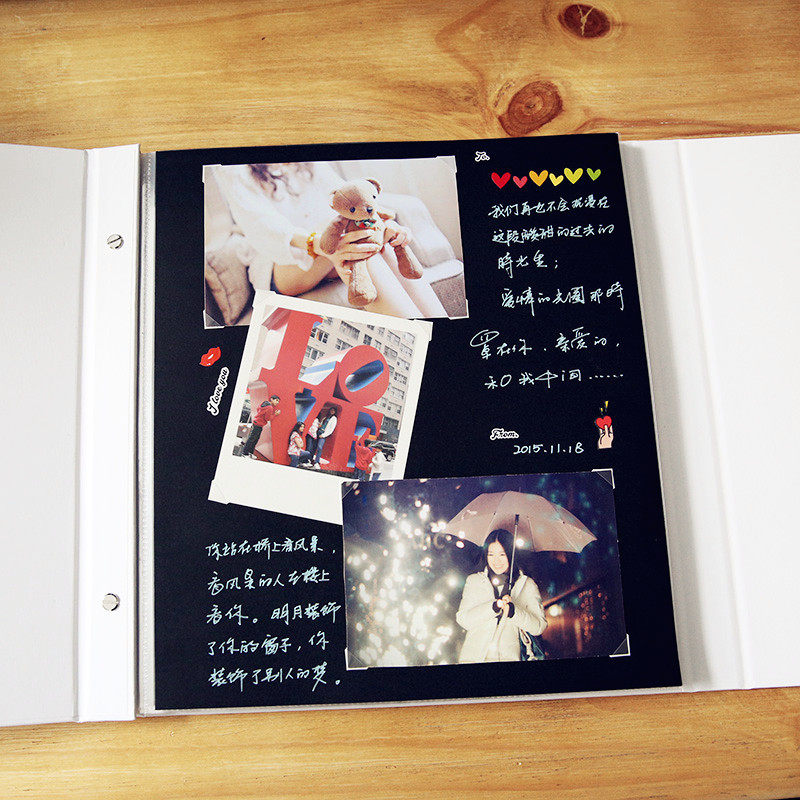 To.
我们再也不会沉浸在
这段酸甜的过去的
時光里；
爱情的去图那時
罩在你、亲爱的，
和我中间……
From.
2015.11.18
I love you
LOVE
你站在桥上看风景，
看风景的人在楼上
看你。明月装饰
了你的窗子，你
装饰了别人的梦。